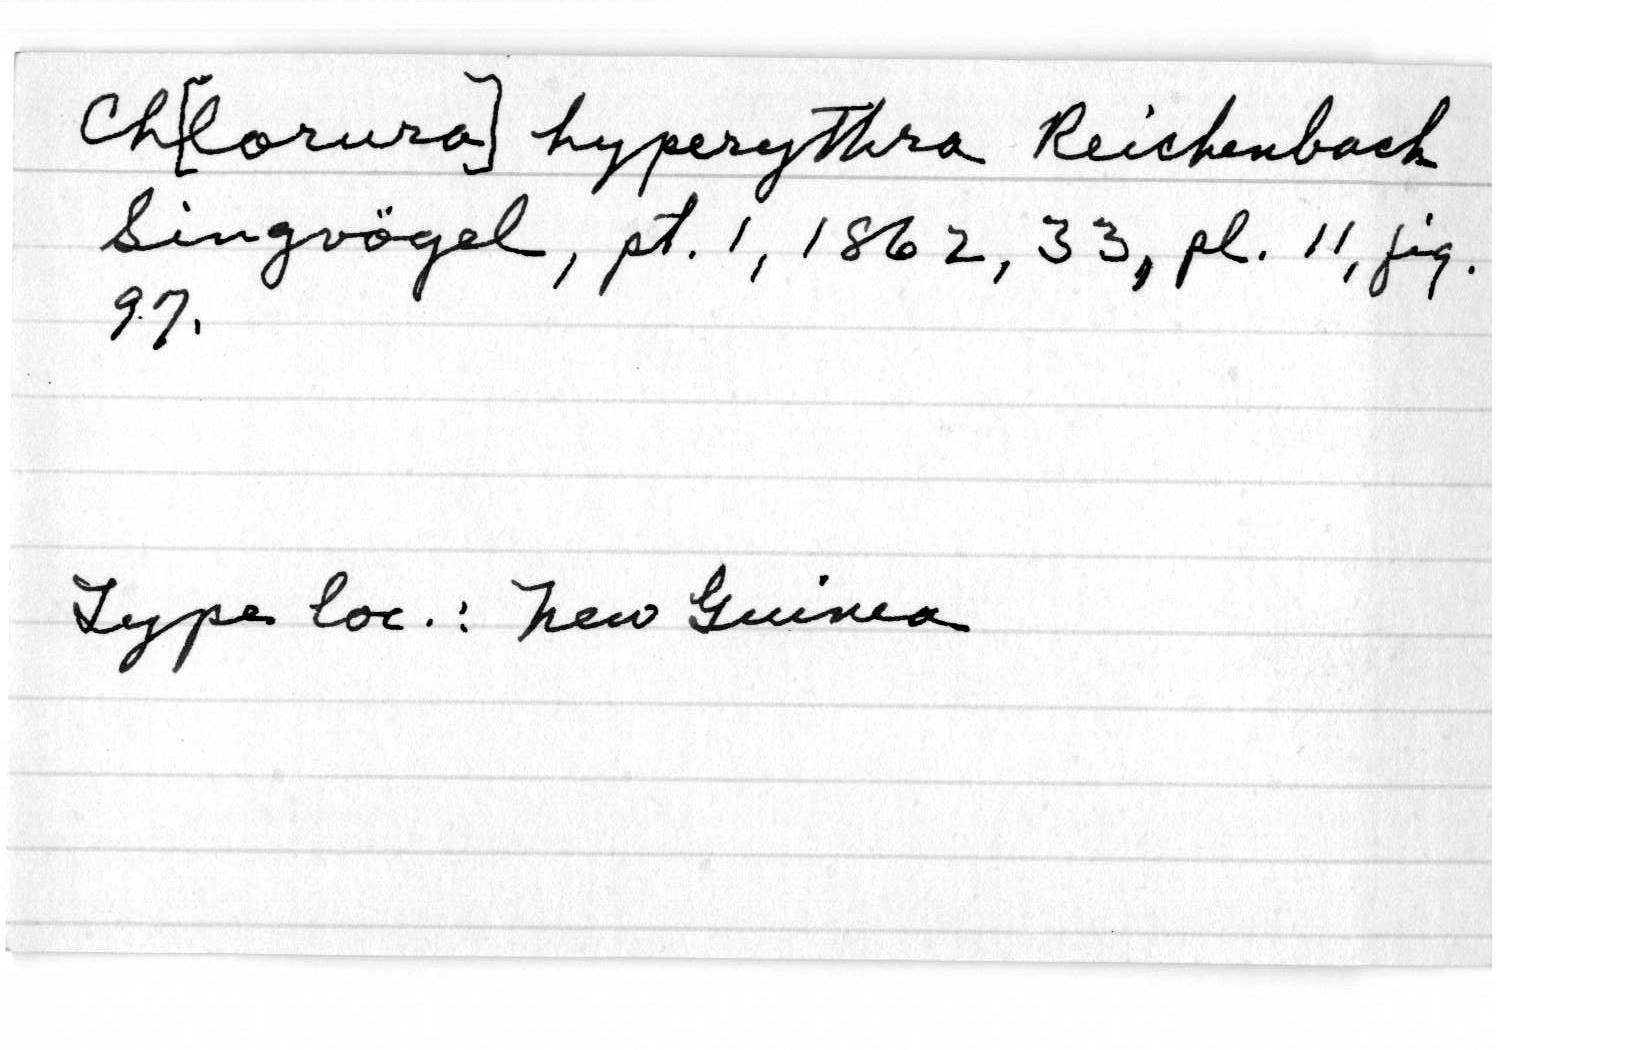 Ch[lorura] hyperythra Reichenbach
Singvögel, pt. 1, 1862, 33, pl. 11, fig.
97.
Type loc.: New Guinea